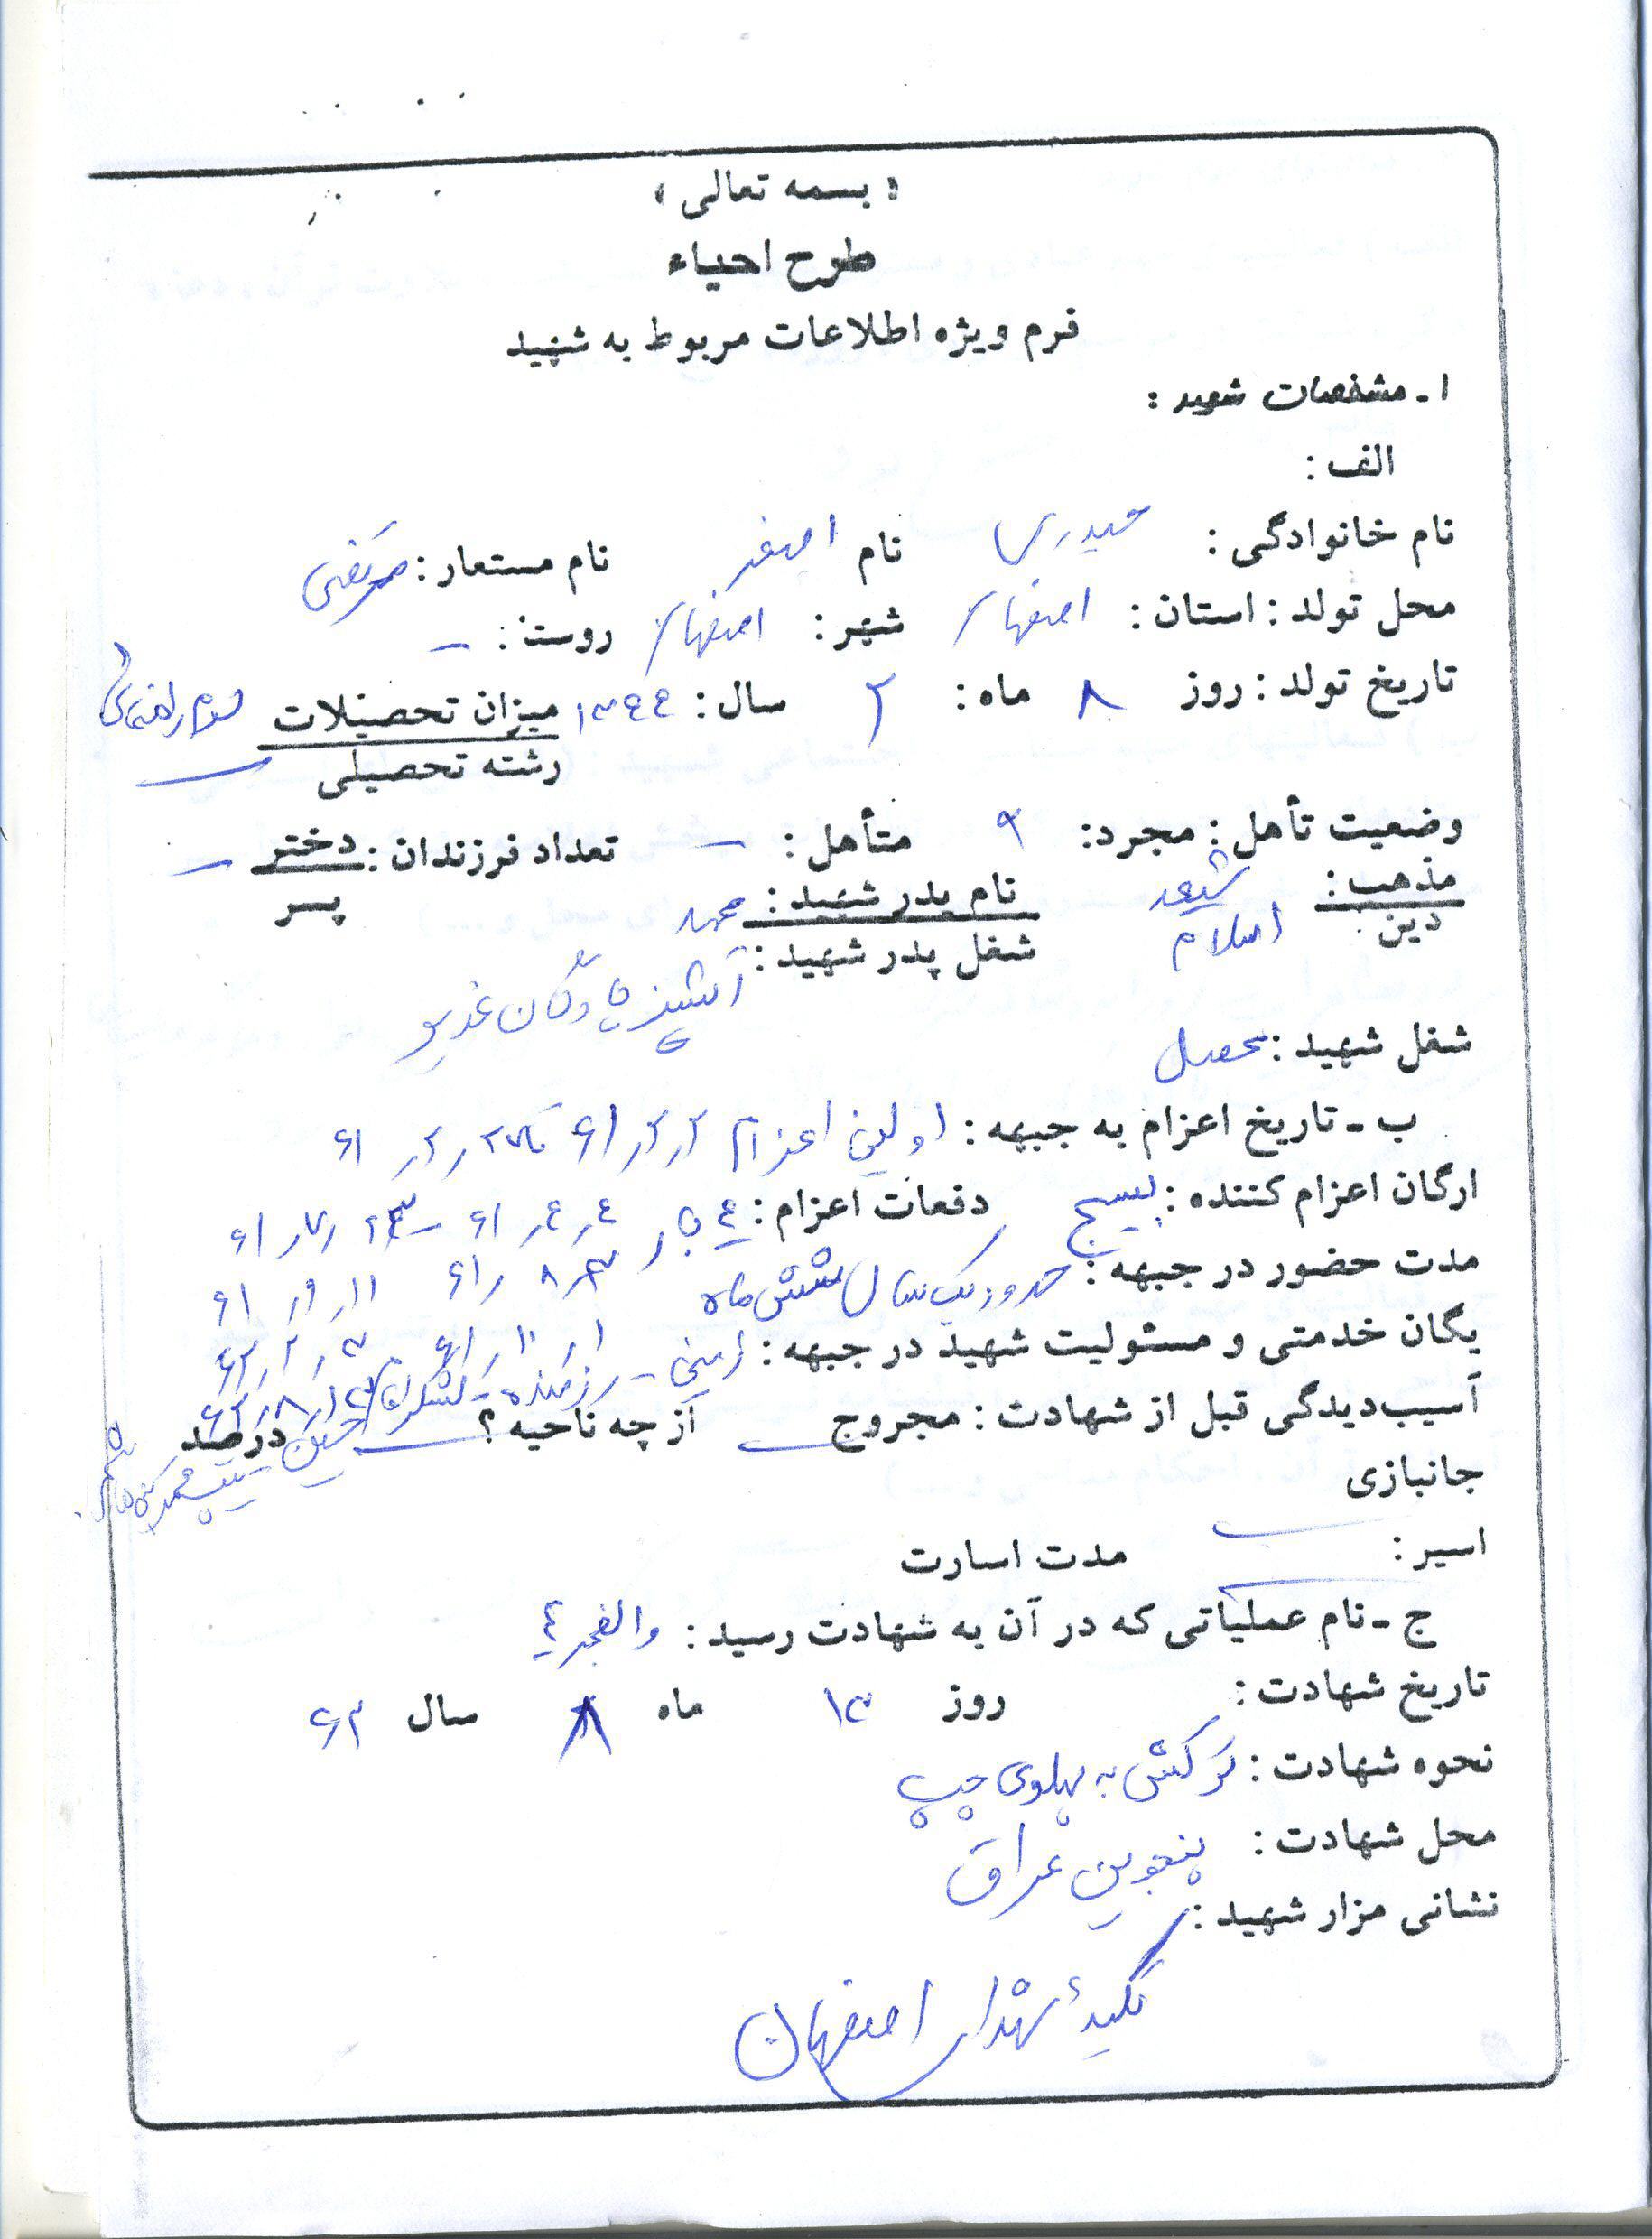 « بسمه تعالی »
طرح احیاء
فرم ویژه اطلاعات مربوط به شهید
۱ ـ مشخصات شهید :
الف :
نام خانوادگی : حیدری نام اصغر نام مستعار : مرتضی
محل تولد : استان : اصفهان شهر : اصفهان روستا : ــ
تاریخ تولد : روز ۸ ماه : ۲ سال : ۱۳۴۴ میزان تحصیلات سوم راهنمائی
رشته تحصیلی ــ
وضعیت تأهل : مجرد: متأهل : ــ تعداد فرزندان : دختر ــ
پسر
مذهب : شیعه نام پدر شهید : محمد
دین اسلام شغل پدر شهید : آشپز پادگان غدیر
شغل شهید : محصل
ب ـ تاریخ اعزام به جبهه : اولین اعزام ۲ر۲ر۶۱ تا ۲۷ر۲ر۶۱
ارگان اعزام کننده : بسیج دفعات اعزام : ۴ بار ۴ر۴ر۶۱ ــ ر۷ر۶۱
مدت حضور در جبهه : حدود یک سال شش ماه ۳ر۸ر۶۱ ۱۱ر۹ر۶۱
یگان خدمتی و مسئولیت شهید در جبهه : زمینی ــ رزمنده ــ لشکر امام حسین ــ تیپ ۱ر۱۰ر۶۱ ۳ر۲ر۶۲
آسیب‌دیدگی قبل از شهادت : مجروح ــ از چه ناحیه ؟ ــ درصد
جانبازی
اسیر : ــ مدت اسارت ــ
ج ـ نام عملیاتی که در آن به شهادت رسید : والفجر ۴
تاریخ شهادت : روز ۱۳ ماه ۸ سال ۶۲
نحوه شهادت : ترکش به پهلوی چپ
محل شهادت : پنجوین عراق
نشانی مزار شهید :
تکیهٔ شهدای اصفهان